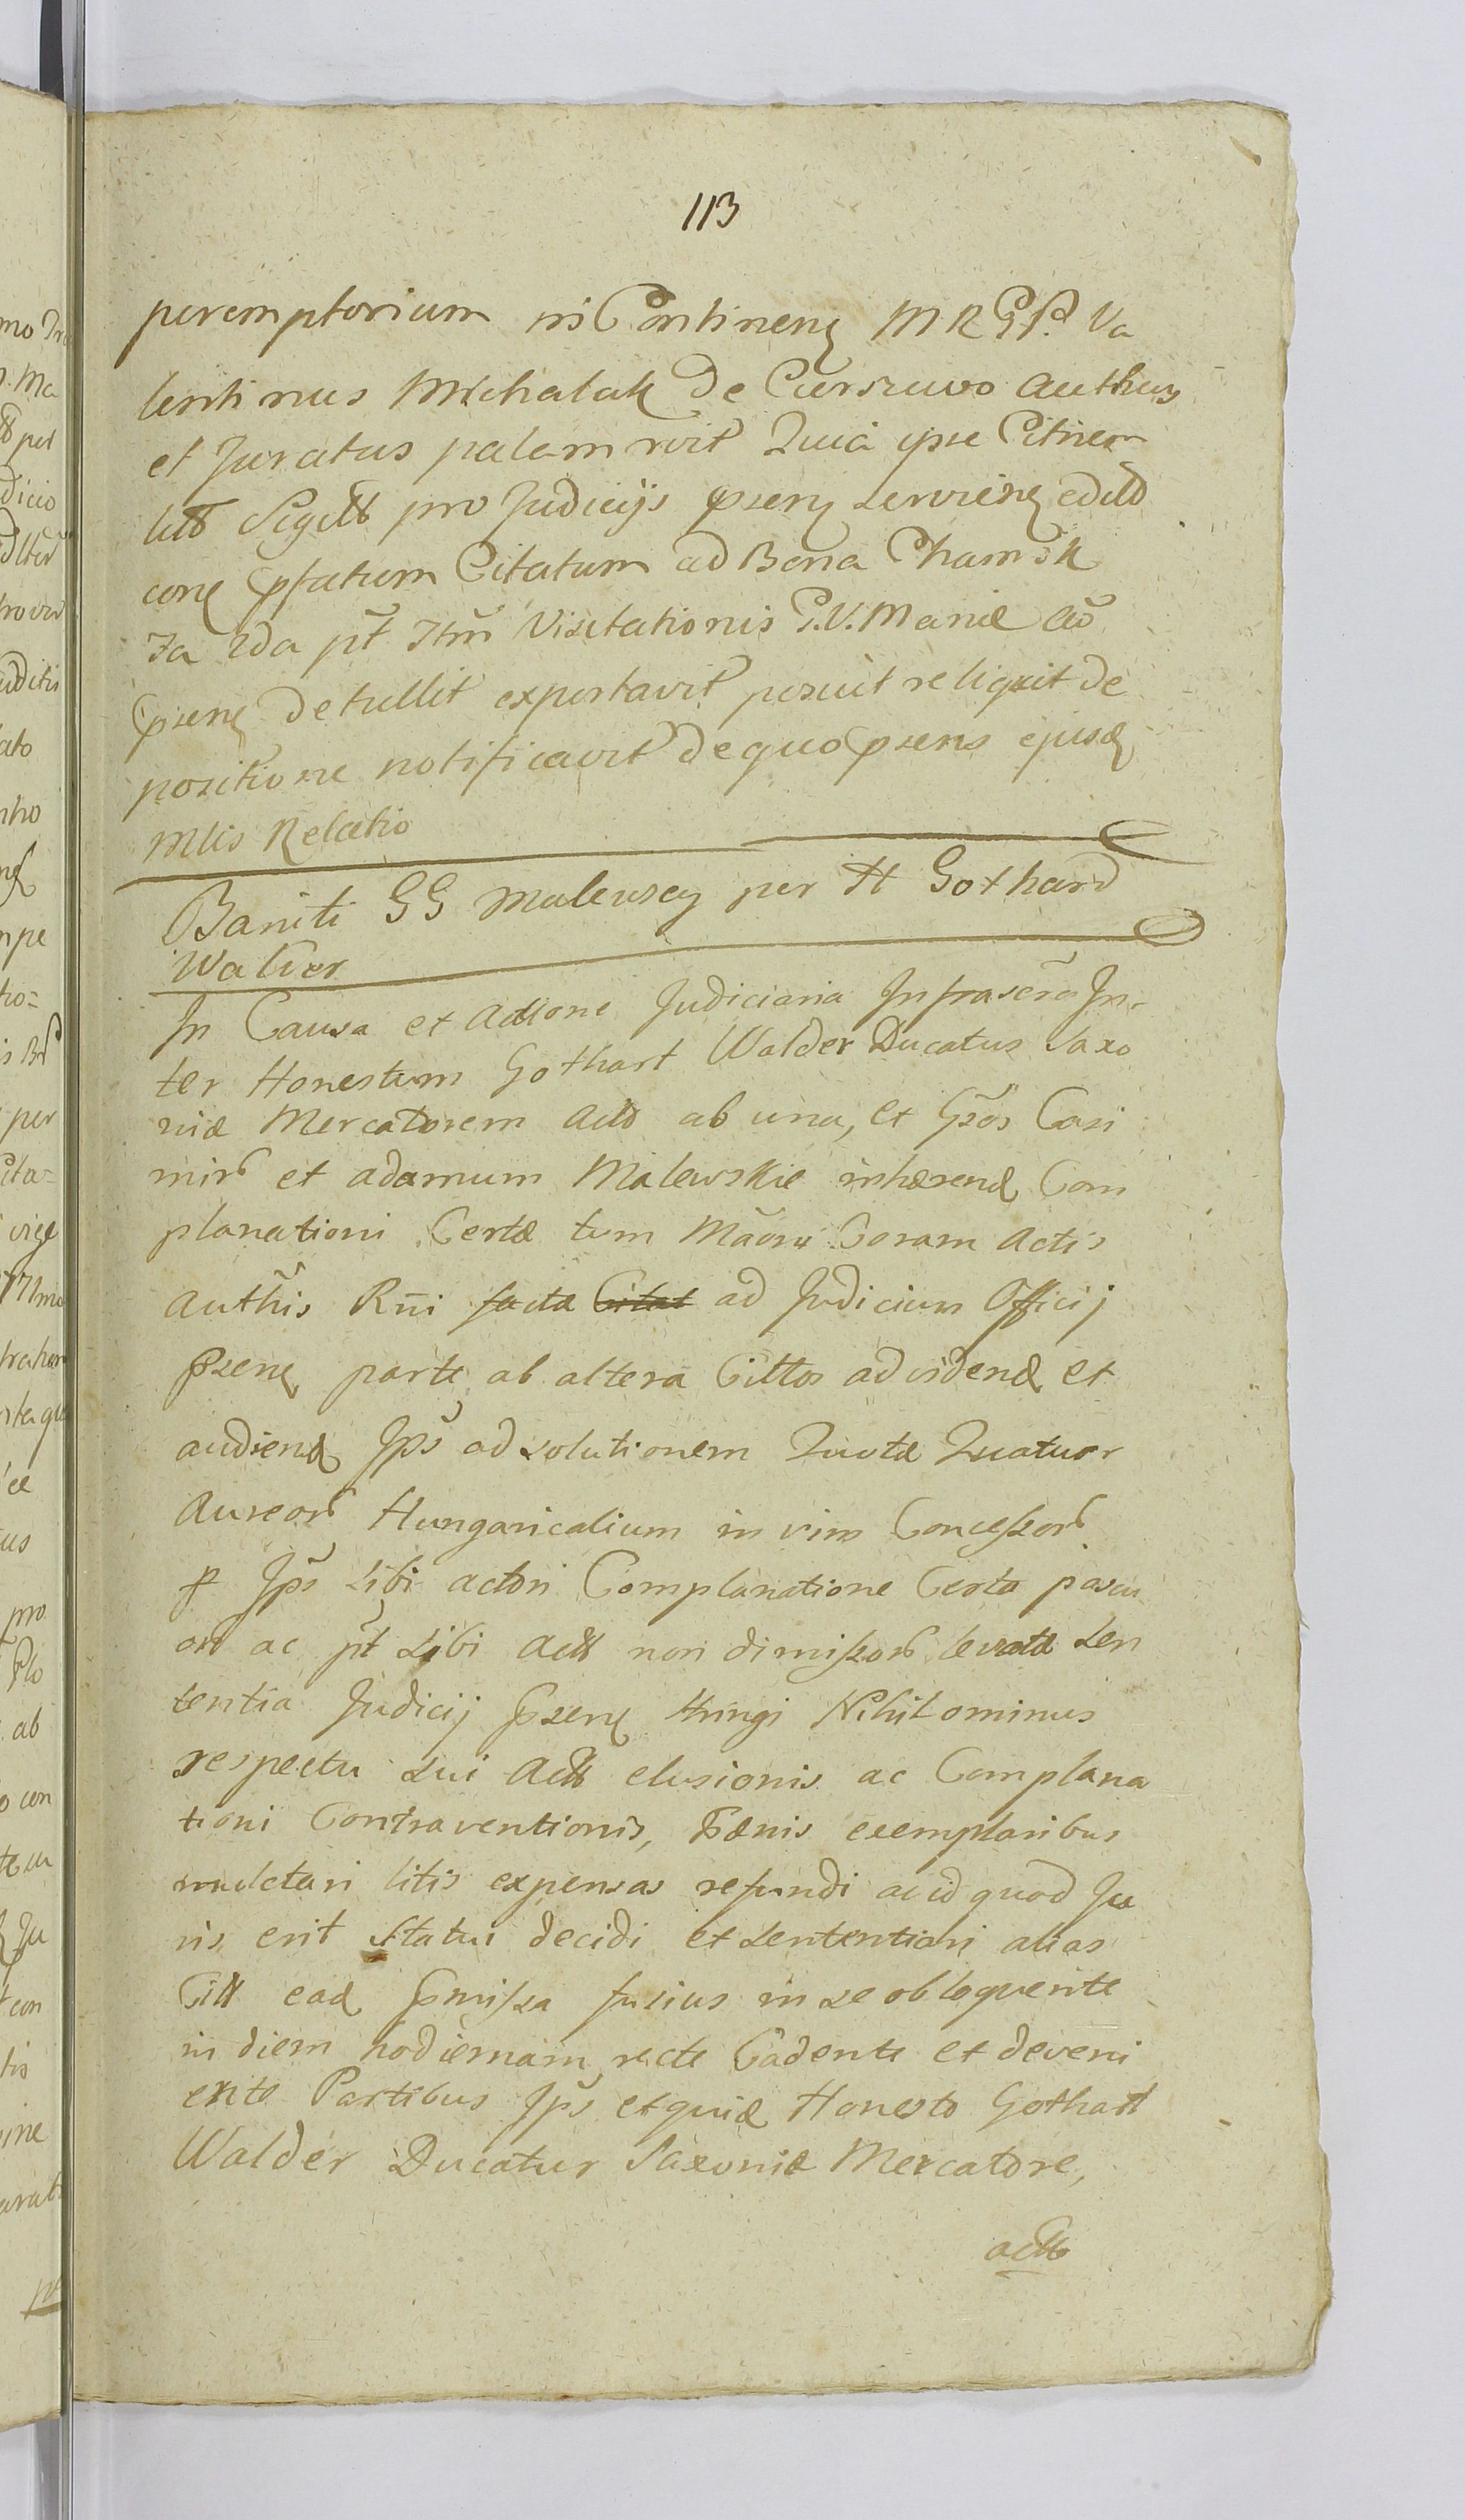 113
peremptorium in Continen MRGP. Va
lentinus Michalak de Curszewo Authus
et Juratus palam rvit Quia ipse Citnem
littb Sigilltb pro Judicijs psen servien edittb
con pfatum Citatum ad Bona Chamsk
Ia 2da pt Ftm Visitationis P.V. Mariæ
psen detullit exportavit posuit reliquit de
positione notificavit de quo psens ejusd
Mlis Relatio
Baniti GG Malewscy per H Gothard
Walder
In Causa et Actione Judiciaria Infrascra In-
ter Honestum Gothart Walder Ducatus Saxo
niæ Mercatorem Act ab una, et Gsos Casi
mir et Adamum Malewskie inhærend Com
planationi Certæ tum Maorii Coram Actis
Authis Rni facta Citat ad Judicium Officij
psen parte ab altera Cittos ad vidend et
audiend Ips ad solutionem Quotæ Quatuor
Aureor Hungaricalium in vim Concessor
p Ips sibi actori Complanatione Certa pascu
or ac pt sibi Act non dimissor levata sen
tentia Judicij psen stringi Nihilominus
respectu sui Act elusionis ac Complana
tioni Contraventionis, Pænis exemplaribus
mulctari litis expensas refundi ac id quod Ju
ris erit statui decidi et sententiari alias
Citt ead pmissa fusius in se obloquente
in diem hodiernam recte Cadente et deveni
ente Partibus Ips et quid Honesto Gothart
Walder Ducatus Saxoniæ Mercatore,
act